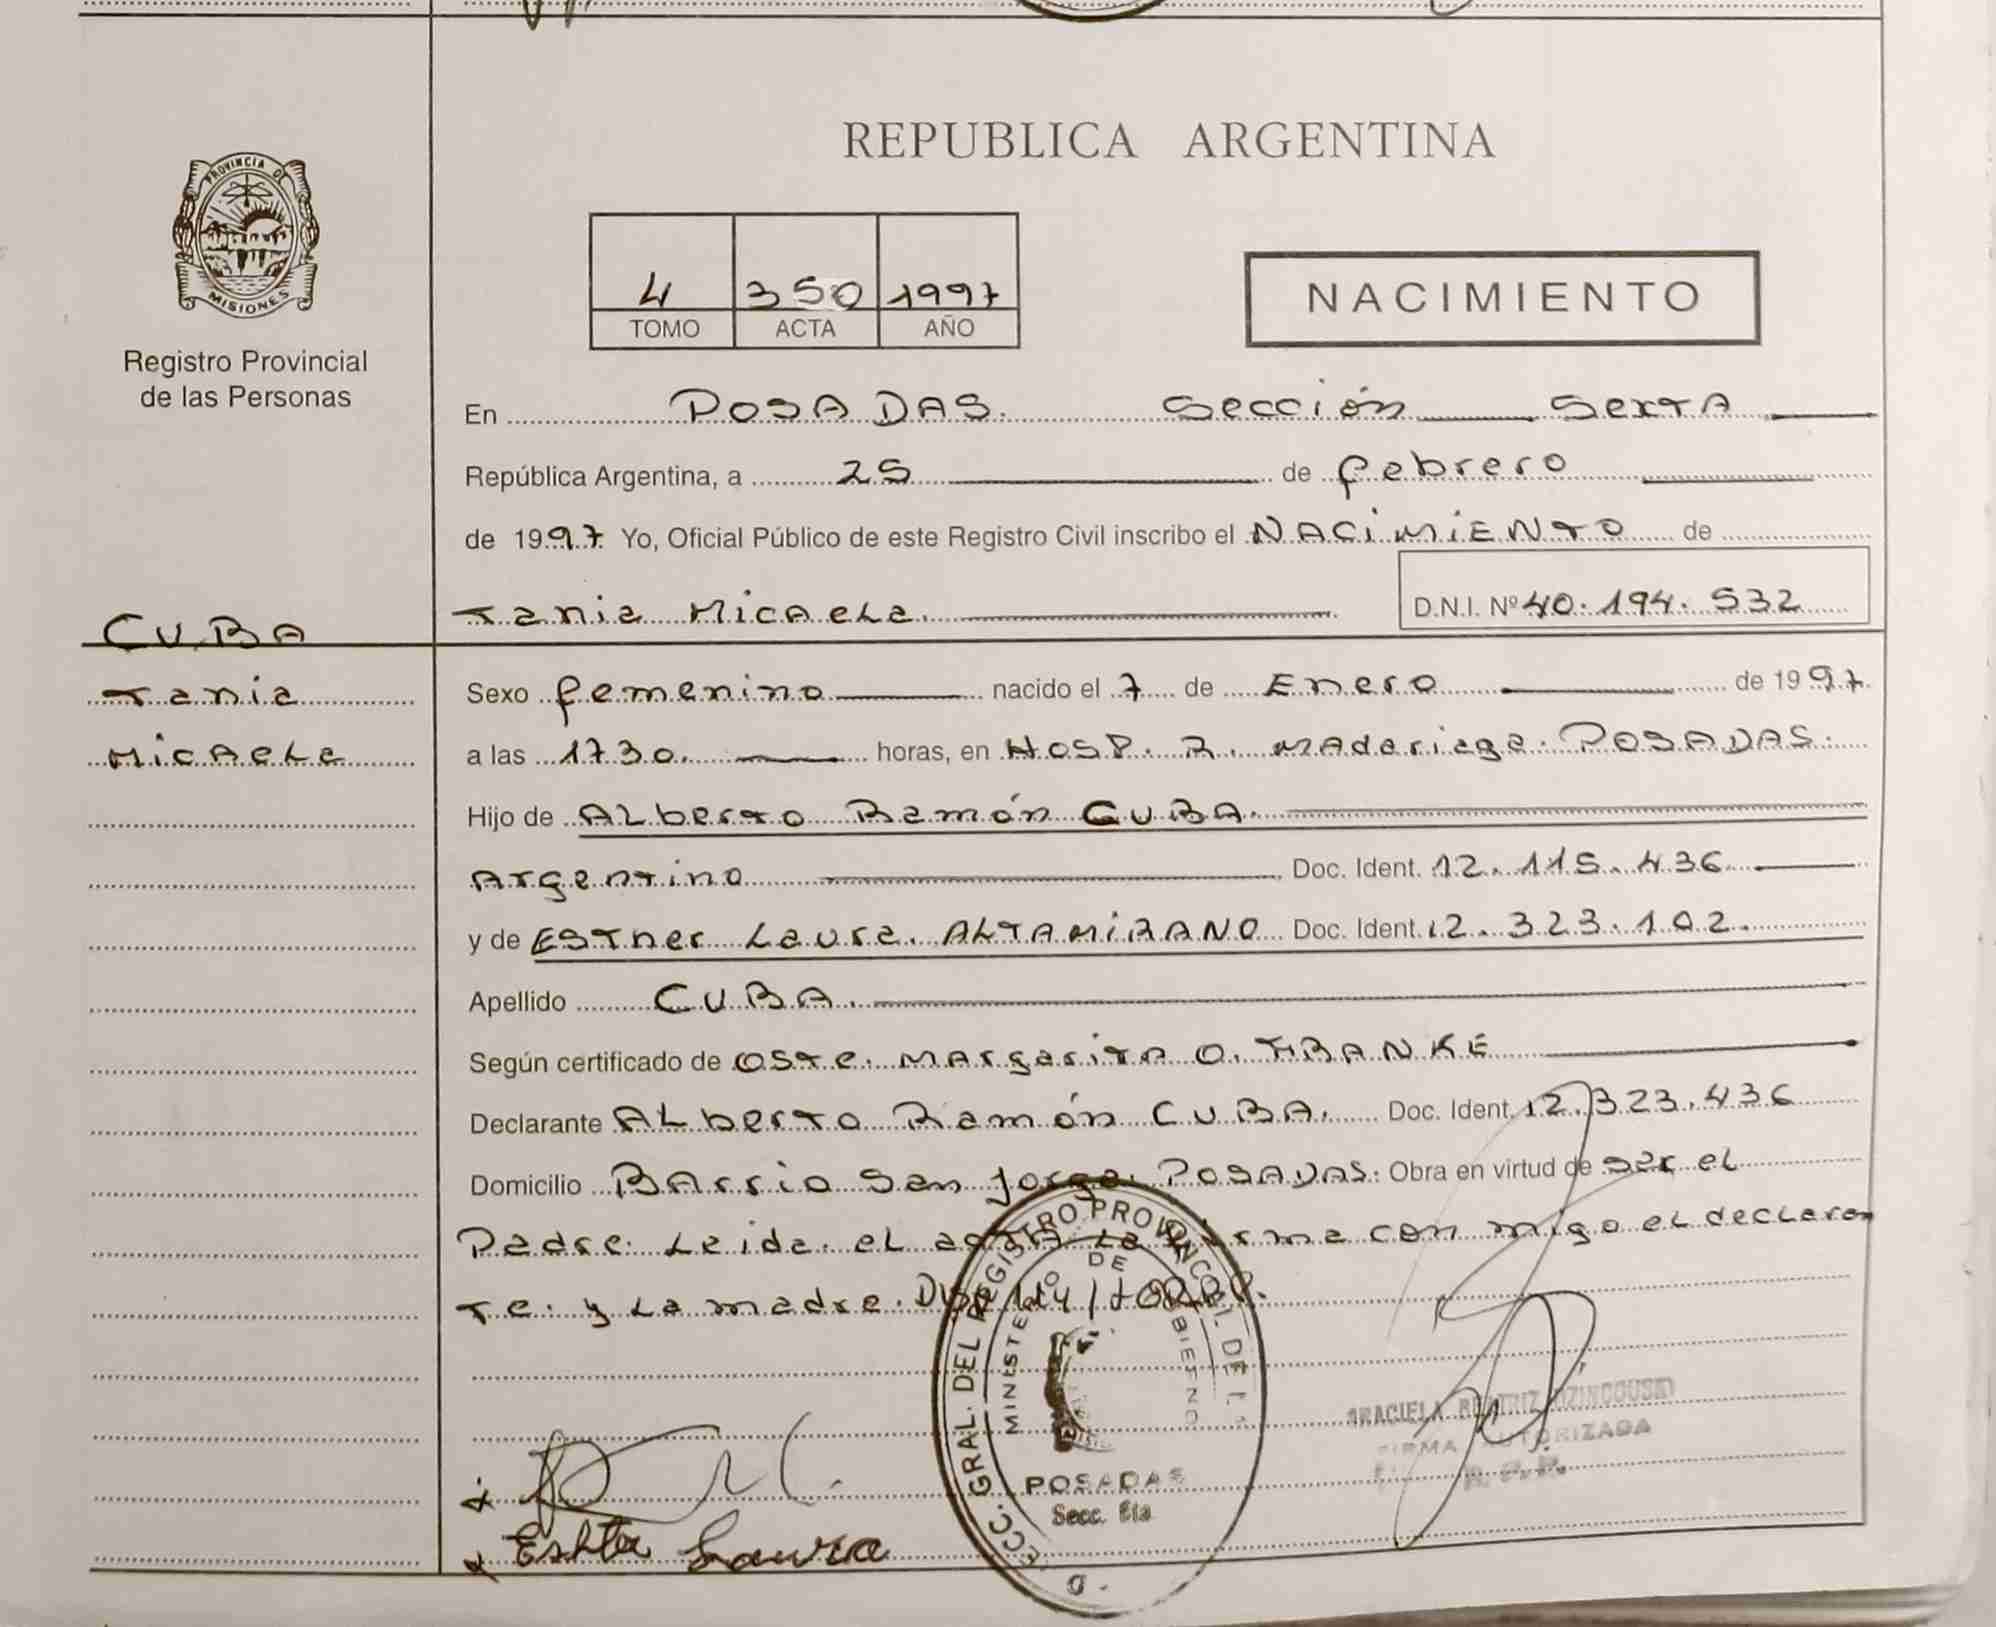 PROVINCIA DE
MISIONES
Registro Provincial
de las Personas
REPUBLICA ARGENTINA
4 350 1997
TOMO ACTA AÑO
NACIMIENTO
En POSADAS. Sección Sexta
República Argentina, a 25 de febrero
de 1997 Yo, Oficial Público de este Registro Civil inscribo el NACIMIENTO de
Tania Micaela.
D.N.I. Nº 40.194.532
CUBA
Tania
Micaela
Sexo femenino nacido el 7 de Enero de 1997.
a las 1730. horas, en HOSP. R. Madariaga. POSADAS.
Hijo de Alberto Ramón CUBA.
Argentino Doc. Ident. 12.115.436
y de Esther Laura. ALTAMIRANO Doc. Ident. 12.323.102.
Apellido CUBA.
Según certificado de Oste. Margarita O. FRANKE
Declarante Alberto Ramón CUBA. Doc. Ident. 12.323.436
Domicilio Barrio San Jorge. POSADAS. Obra en virtud de ser el
Padre. Leida. el acta La firma con migo el declaran
te. y La madre.
Esther Laura
GRAL. DEL REGISTRO PROVINCIAL DE
MINISTERIO DE
POSADAS
Secc. 6ta
GRACIELA BEATRIZ
FIRMA AUTORIZADA
R. P. P.